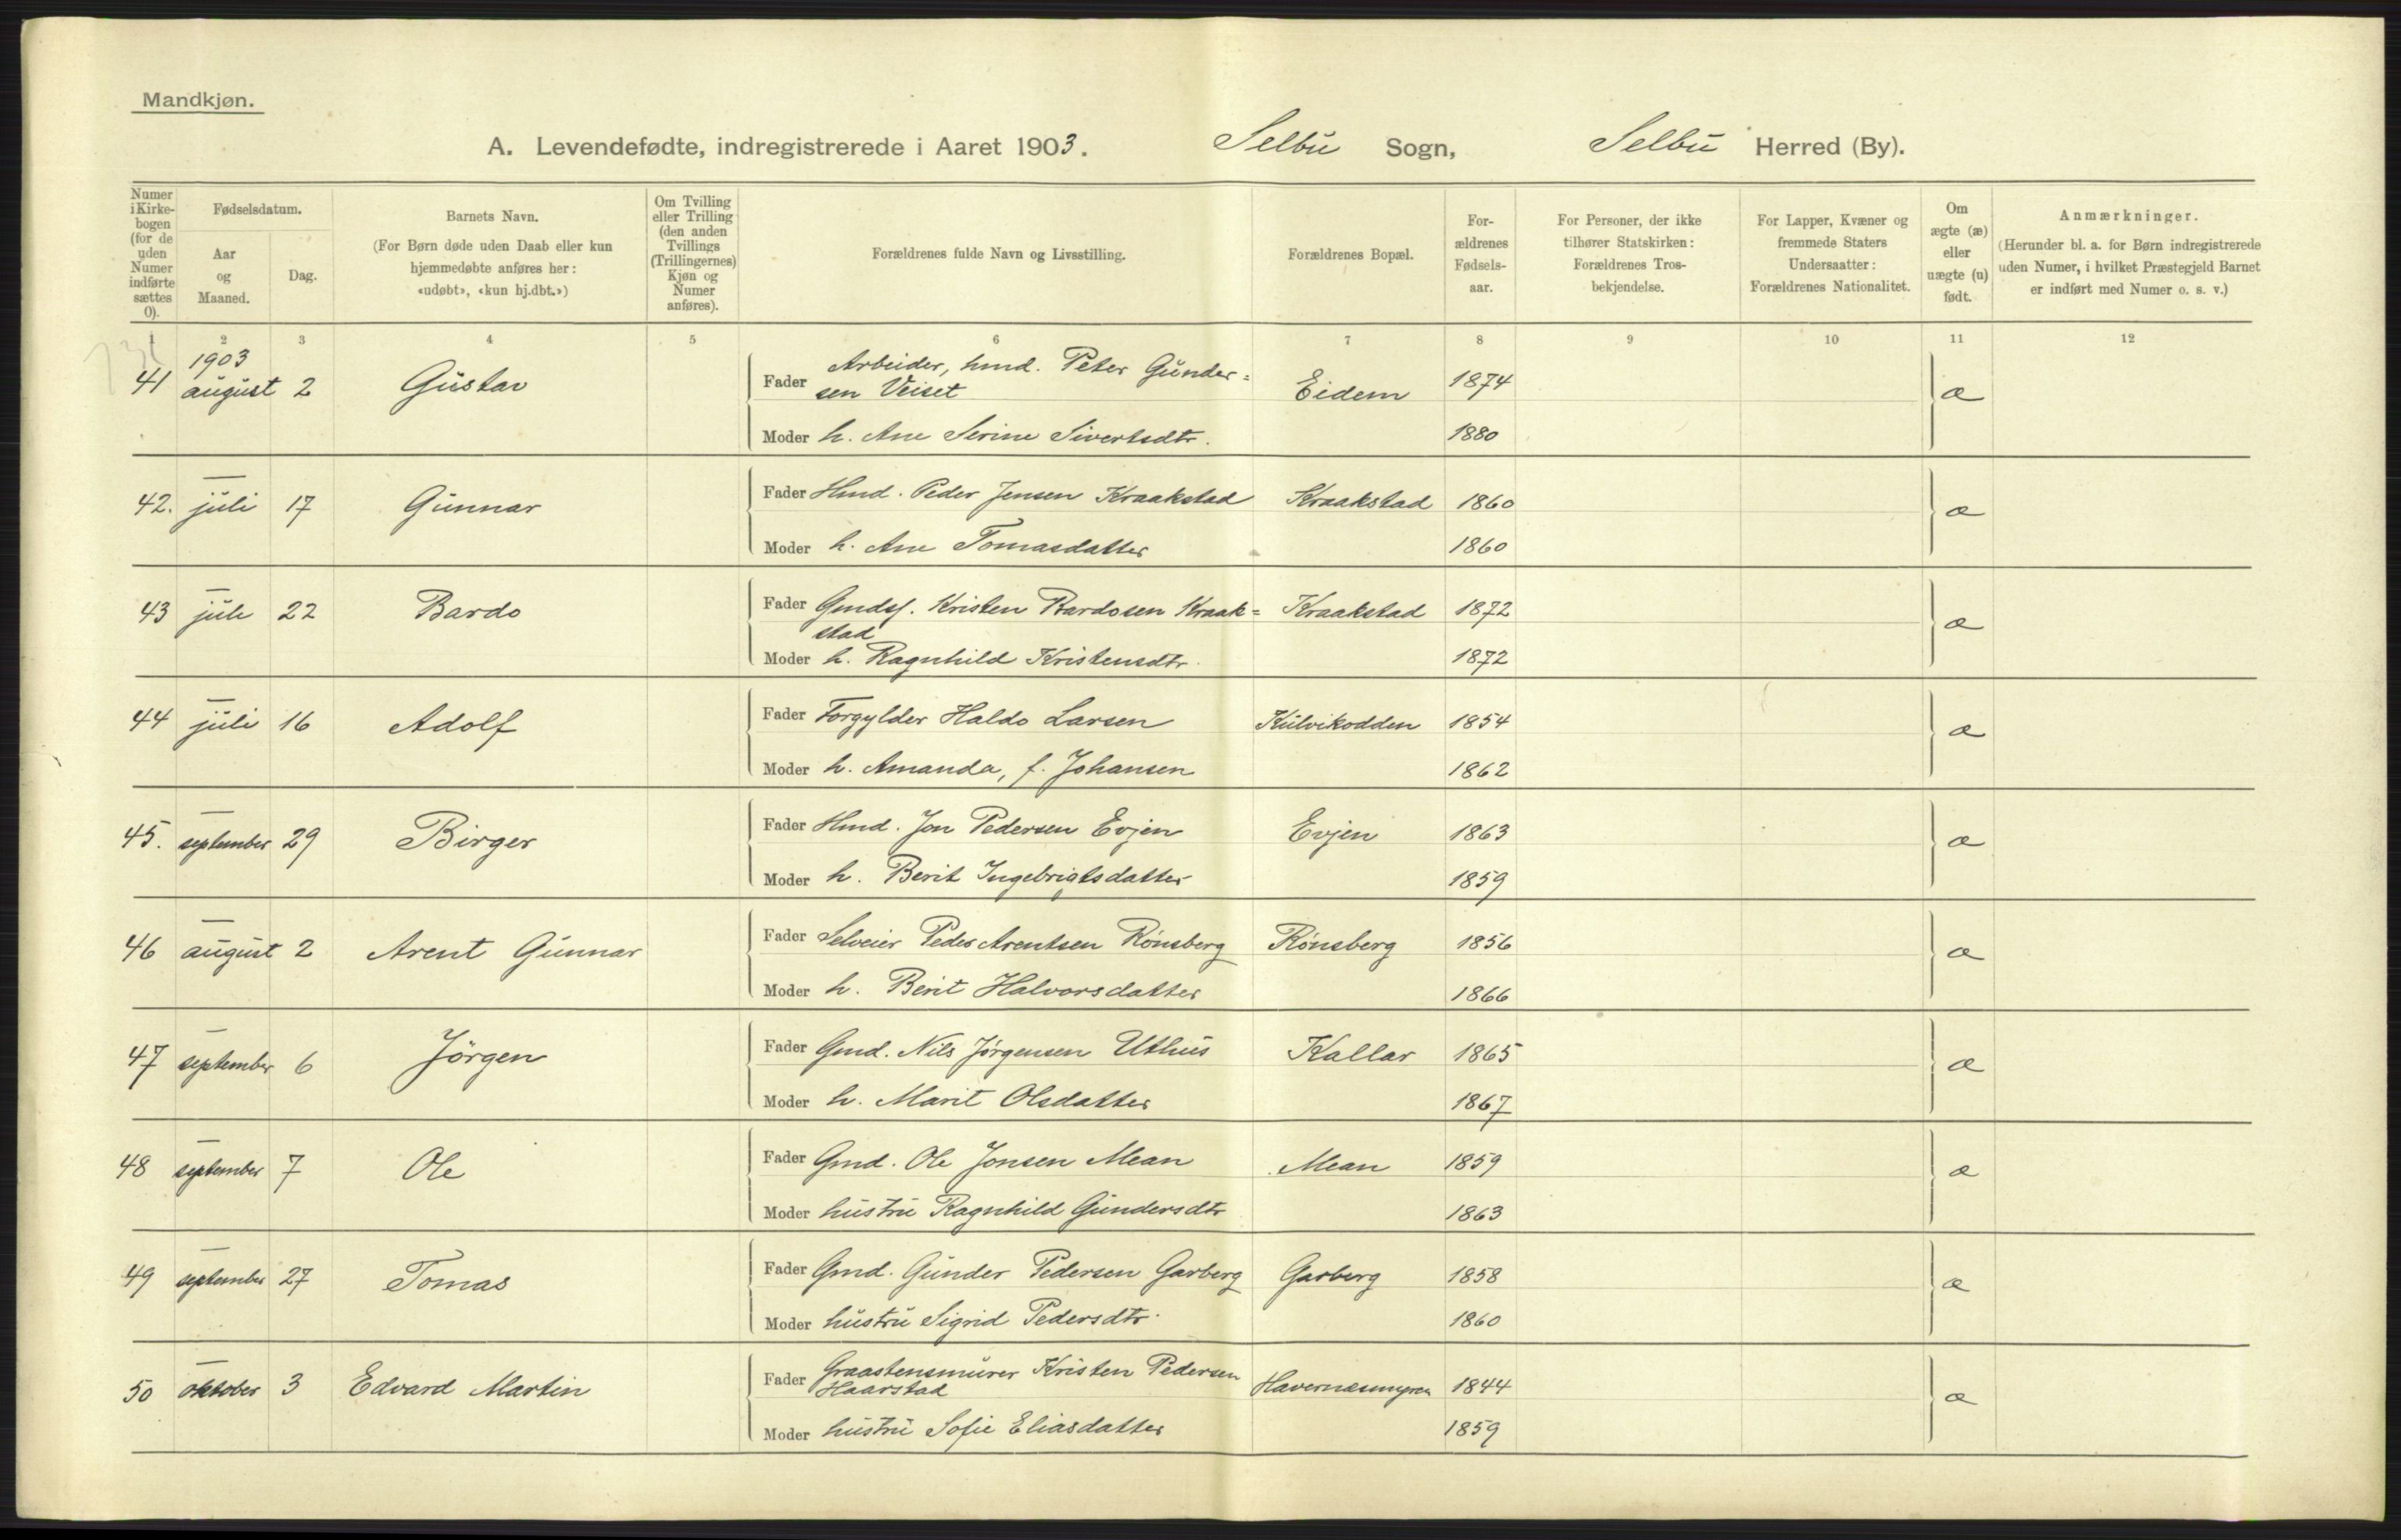 Mandkjøn.
A. Levendefødte, indregistrerede i Aaret 1903. Selbu Sogn, Selbu Herred (By).
Numer i Kirkebogen (for de uden Numer indførte sættes 0).
Fødselsdatum.
Aar og Maaned.
Dag.
Barnets Navn.
(For Børn døde uden Daab eller kun hjemmedøbte anføres her: «udøbt», «kun hj.dbt.»)
Om Tvilling eller Trilling (den anden Tvillings (Trillingernes) Kjøn og Numer anføres).
Forældrenes fulde Navn og Livsstilling.
Forældrenes Bopæl.
Forældrenes Fødselsaar.
For Personer, der ikke tilhører Statskirken: Forældrenes Trosbekjendelse.
For Lapper, Kvæner og fremmede Staters Undersaatter: Forældrenes Nationalitet.
Om ægte (æ) eller uægte (u) født.
Anmærkninger.
(Herunder bl. a. for Børn indregistrerede uden Numer, i hvilket Præstegjeld Barnet er indført med Numer o. s. v.)
1 2 3 4 5 6 7 8 9 10 11 12
1903
41 august 2 Gustav Fader Arbeider, hmd. Peter Gunder=
sen Veiset Eidem 1874 æ
Moder h. Ane Serine Sivertsdtr. 1880
42. — juli 17 Gunnar Fader Hmd. Peder Jensen Kraakstad Kraakstad 1860 æ
Moder h. Ane Tomasdatter 1860
43 — juli 22 Bardo Fader Gmdsf. Kristen Bardosen Kraak=
stad Kraakstad 1872 æ
Moder h. Ragnhild Kristensdtr. 1872
44 — juli 16 Adolf Fader Forgylder Haldo Larsen Kulvikodden 1854 æ
Moder h. Amanda, f. Johansen 1862
45. — september 29 Birger Fader Hmd. Jon Pedersen Evjen Evjen 1863 æ
Moder h. Berit Ingebrigtsdatter 1859
46 — august 2 Arent Gunnar Fader Selveier Peder Arentsen Rönsberg Rönsberg 1856 æ
Moder h. Berit Halvorsdatter 1866
47 — september 6 Jörgen Fader Gmd. Nils Jörgensen Uthus Kallar 1865 æ
Moder h. Marit Olsdatter 1867
48 — september 7 Ole Fader Gmd. Ole Jonsen Mean Mean 1859 æ
Moder hustru Ragnhild Gundersdtr 1863
49 — september 27 Tomas Fader Gmd. Gunder Pedersen Garberg Garberg 1858 æ
Moder hustru Sigrid Pedersdtr. 1860
50 — oktober 3 Edvard Martin Fader Graastensmurer Kristen Pedersen
Haarstad 1844 æ
Moder hustru Sofie Eliasdatter 1859